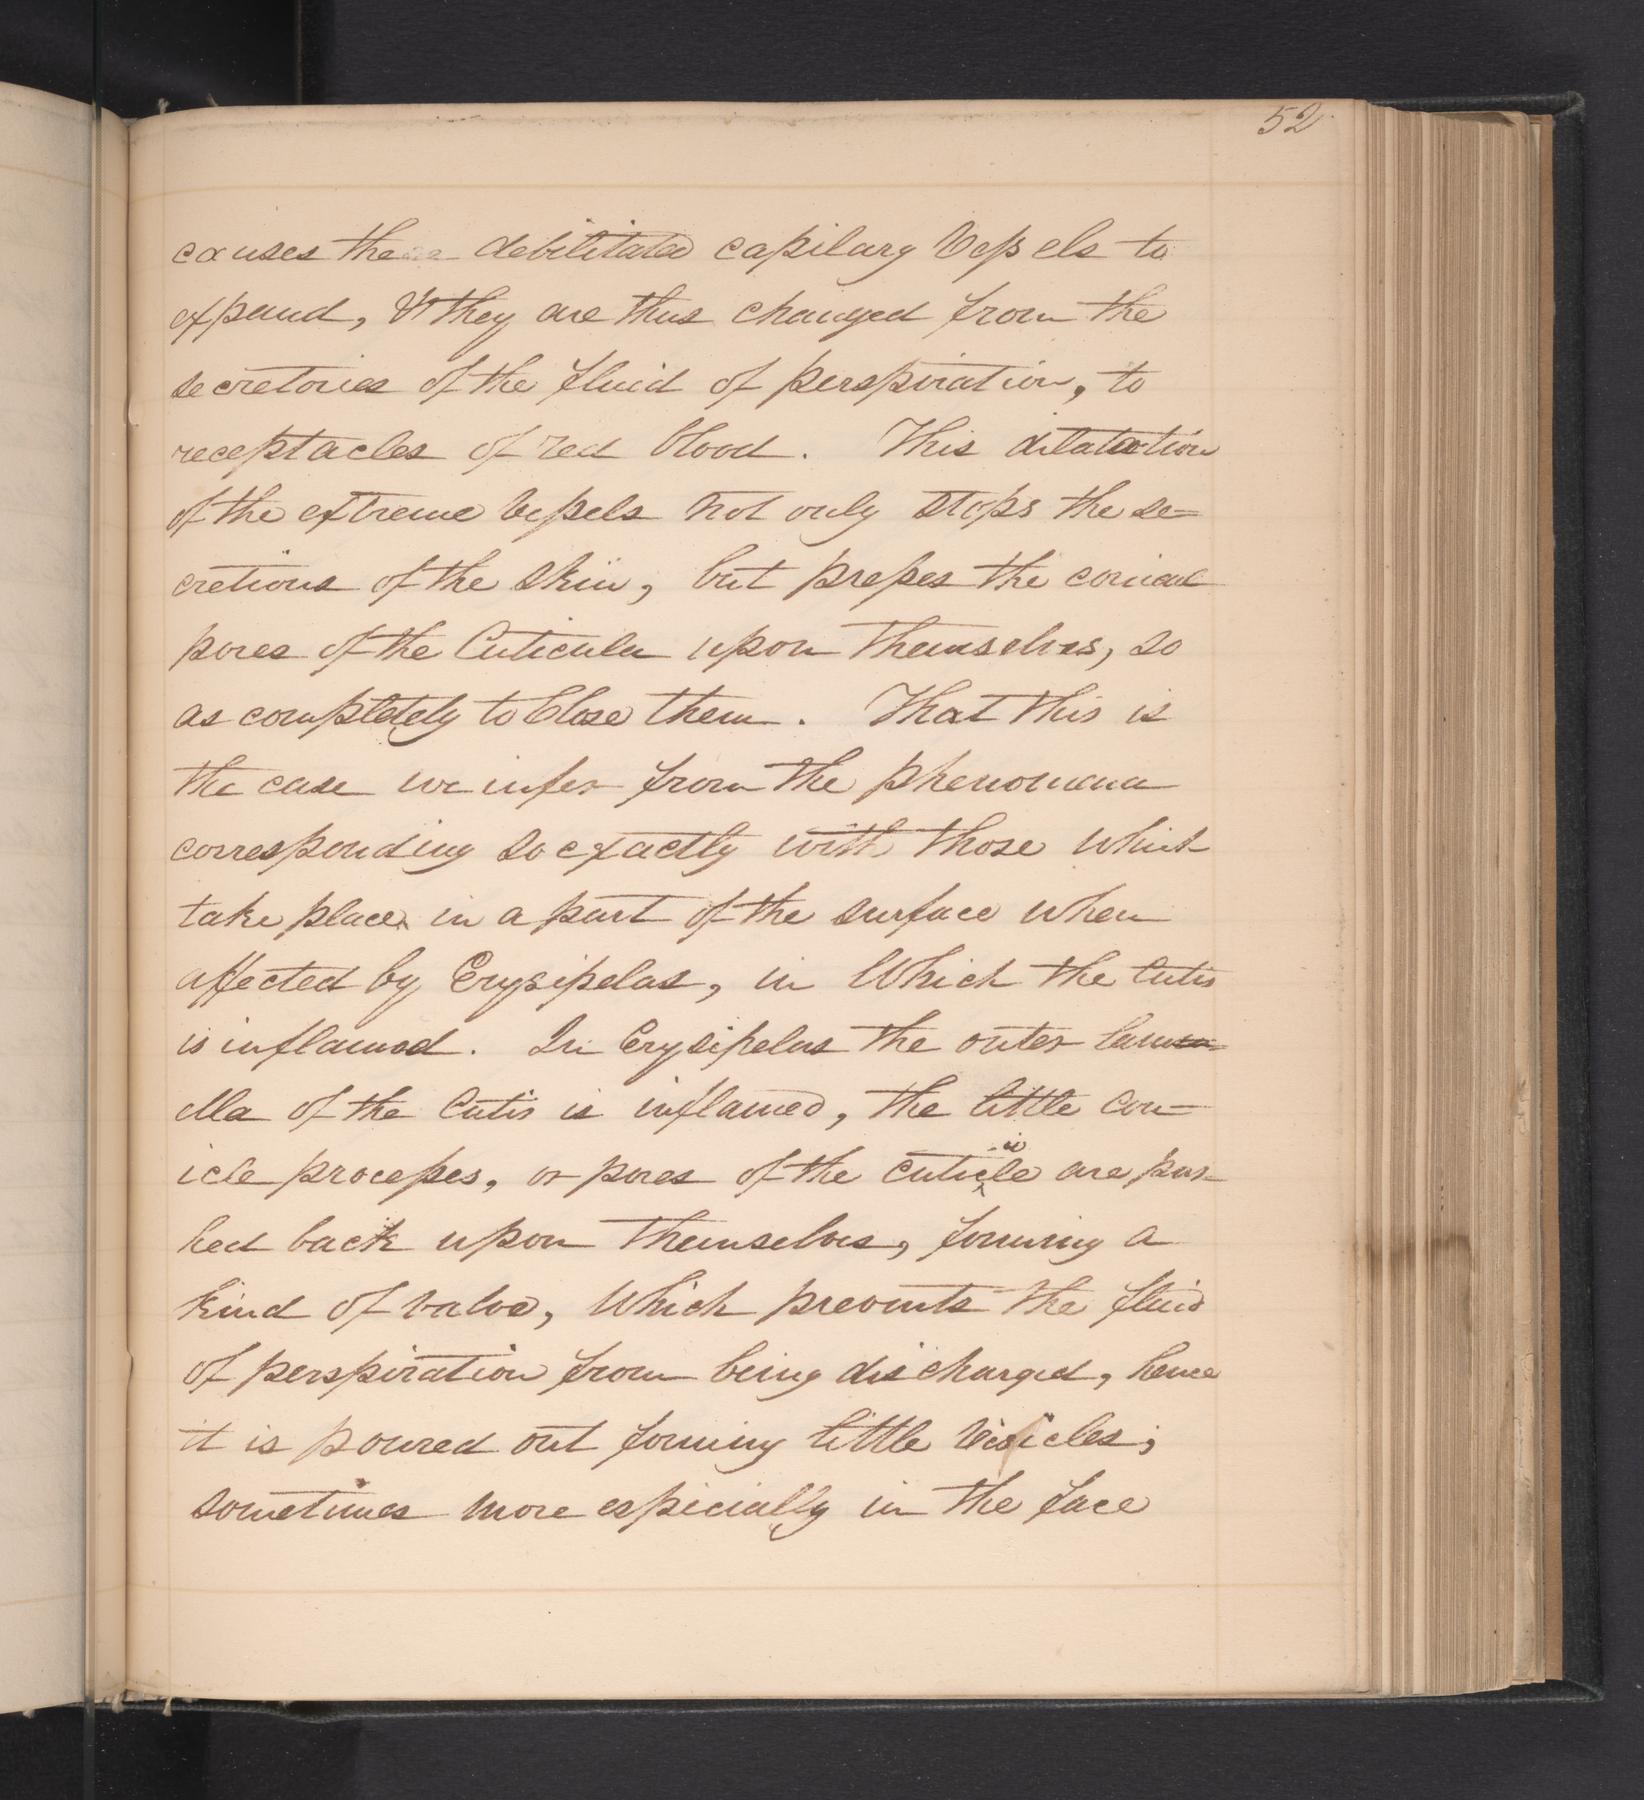 52
causes the debilitated capilary Vessels to
expand, & they are thus changed from the
secretories of the fluid of perspiration, to
receptacles of red blood. This dilatation
of the extreme vessels not only stops the se=
cretions of the skin, but presses the conical
pores of the Cuticula upon themselves, so
as completely to Close them. That this is
the case we infer from the phenomena
corresponding so exactly with those which
take place in a part of the surface when
affected by Erysipelas, in Which the Cutis
is inflamed. In Erysipelas the outer lam
ella of the Cutis is inflamed, the little con=
icle processes, or pores of the cuticle are pus-
hed back upon themselves, forming a
kind of valve, Which prevents the fluid
of perspiration from being discharged, hence
it is poured out forming little Vesicles;
sometimes more espicially in the face